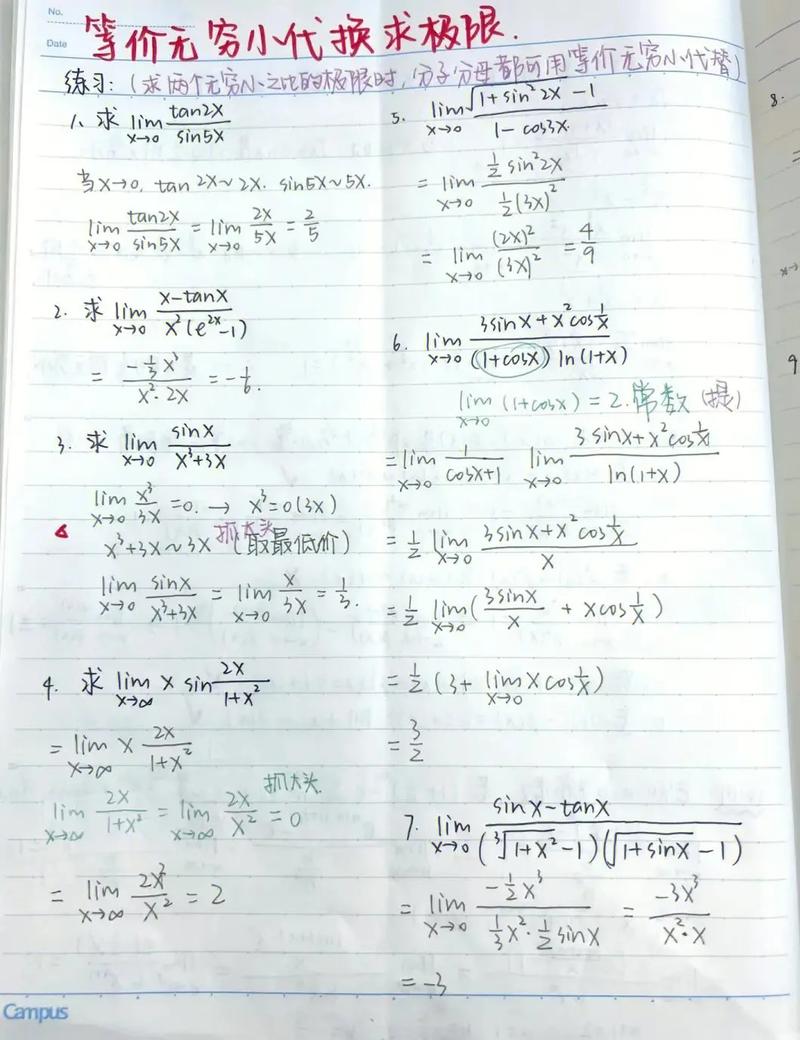 No.
Date
等价无穷小代换求极限.
练习:(求两个无穷小之比的极限时,分子分母都可用等价无穷小代替)
1. 求 lim x→0 tan2x/sin5x
当x→0, tan2x~2x. sin5x~5x.
lim x→0 tan2x/sin5x = lim x→0 2x/5x = 2/5
2. 求 lim x→0 (x-tanx)/(x²(e^2x-1))
= (-1/3 x³)/(x²·2x) = -1/6.
3. 求 lim x→0 sinx/(x³+3x)
lim x→0 x³/3x = 0. → x³=0(3x)
x³+3x~3x 抓大头 (取最低价)
lim x→0 sinx/(x³+3x) = lim x→0 x/3x = 1/3.
4. 求 lim x→∞ x sin 2x/(1+x²)
= lim x→∞ x 2x/(1+x²)
抓大头.
lim x→∞ 2x/(1+x²) = lim x→∞ 2x/x² = 0
= lim x→∞ 2x²/x² = 2
5. lim x→0 (√(1+sin²2x) -1)/(1-cos3x)
= lim x→0 (1/2 sin²2x)/(1/2 (3x)²)
= lim x→0 (2x)²/(3x)² = 4/9
6. lim x→0 (3sinx+x²cos 1/x)/((1+cosx) ln(1+x))
lim x→0 (1+cosx) = 2. 常数 (提)
= lim x→0 1/(cosx+1) lim x→0 (3sinx+x²cos 1/x)/ln(1+x)
= 1/2 lim x→0 (3sinx+x²cos 1/x)/x
= 1/2 lim x→0 (3sinx/x + xcos 1/x)
= 1/2 (3+ lim x→0 xcos 1/x)
= 3/2
7. lim x→0 (sinx-tanx)/((³√(1+x²) -1)(√(1+sinx) -1))
= lim x→0 (-1/2 x³)/(1/3 x²·1/2 sinx) = -3x³/(x²·x)
= -3
Campus
8.
x→
9